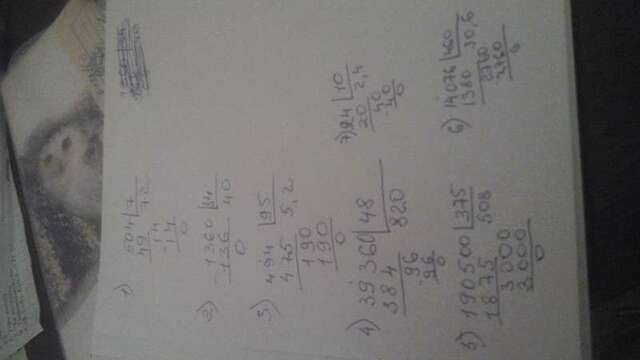 1) 504 | 7
49 72
14
- 14
0
2) 1360 | 34
- 136 40
0
3) 494 | 95
475 5,2
190
190
0
4) 39360 | 48
384 820
96
- 96
0
5) 190500 | 375
1875 508
3000
3000
0
7) 24 | 10
20 2,4
40
- 40
0
6) 14076 | 460
1380 30,6
2760
2760
0